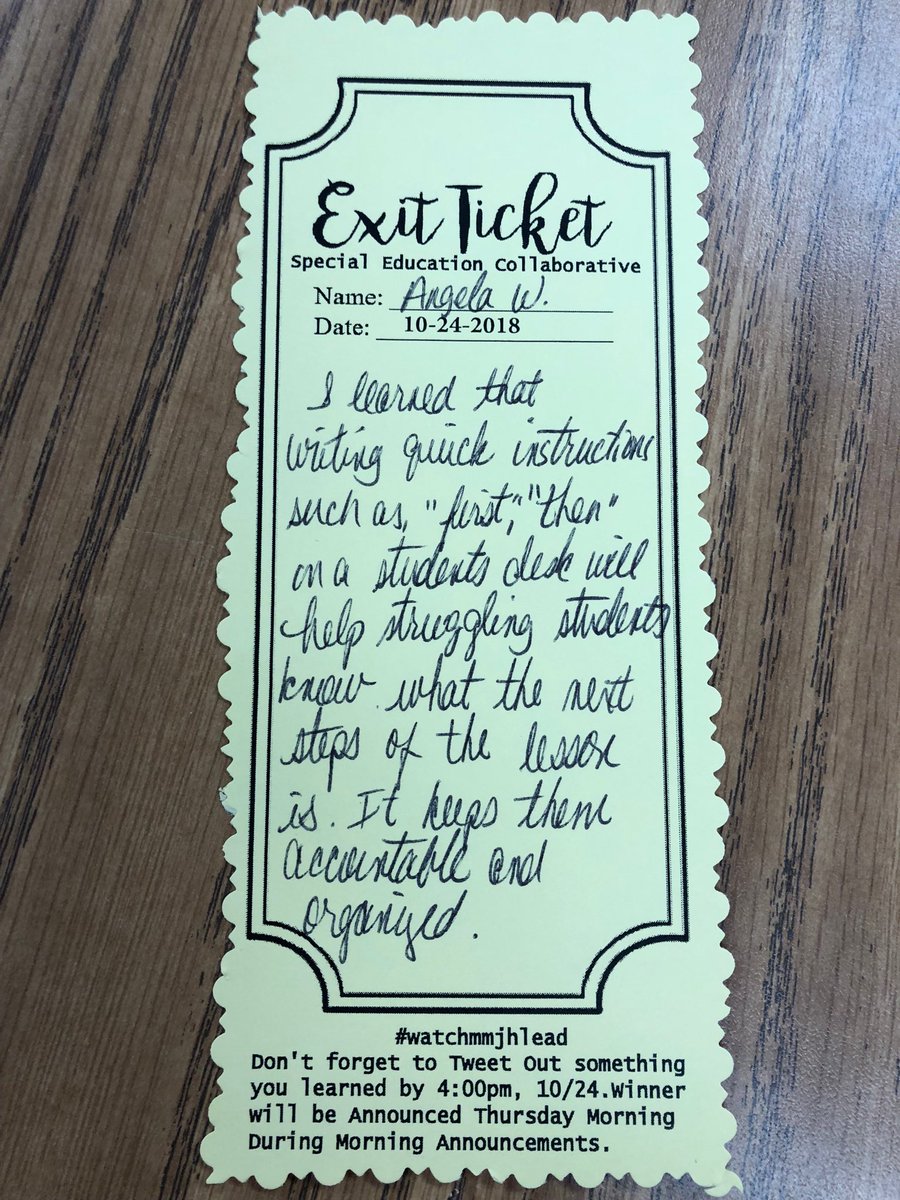 Exit Ticket
Special Education Collaborative
Name: Angela W.
Date: 10-24-2018
I learned that
writing quick instructions
such as, "first," "then"
on a students desk will
help struggling students
know what the next
steps of the lesson
is. It keeps them
accountable and
organized.
#watchmmjhlead
Don't forget to Tweet Out something
you learned by 4:00pm, 10/24.Winner
will be Announced Thursday Morning
During Morning Announcements.